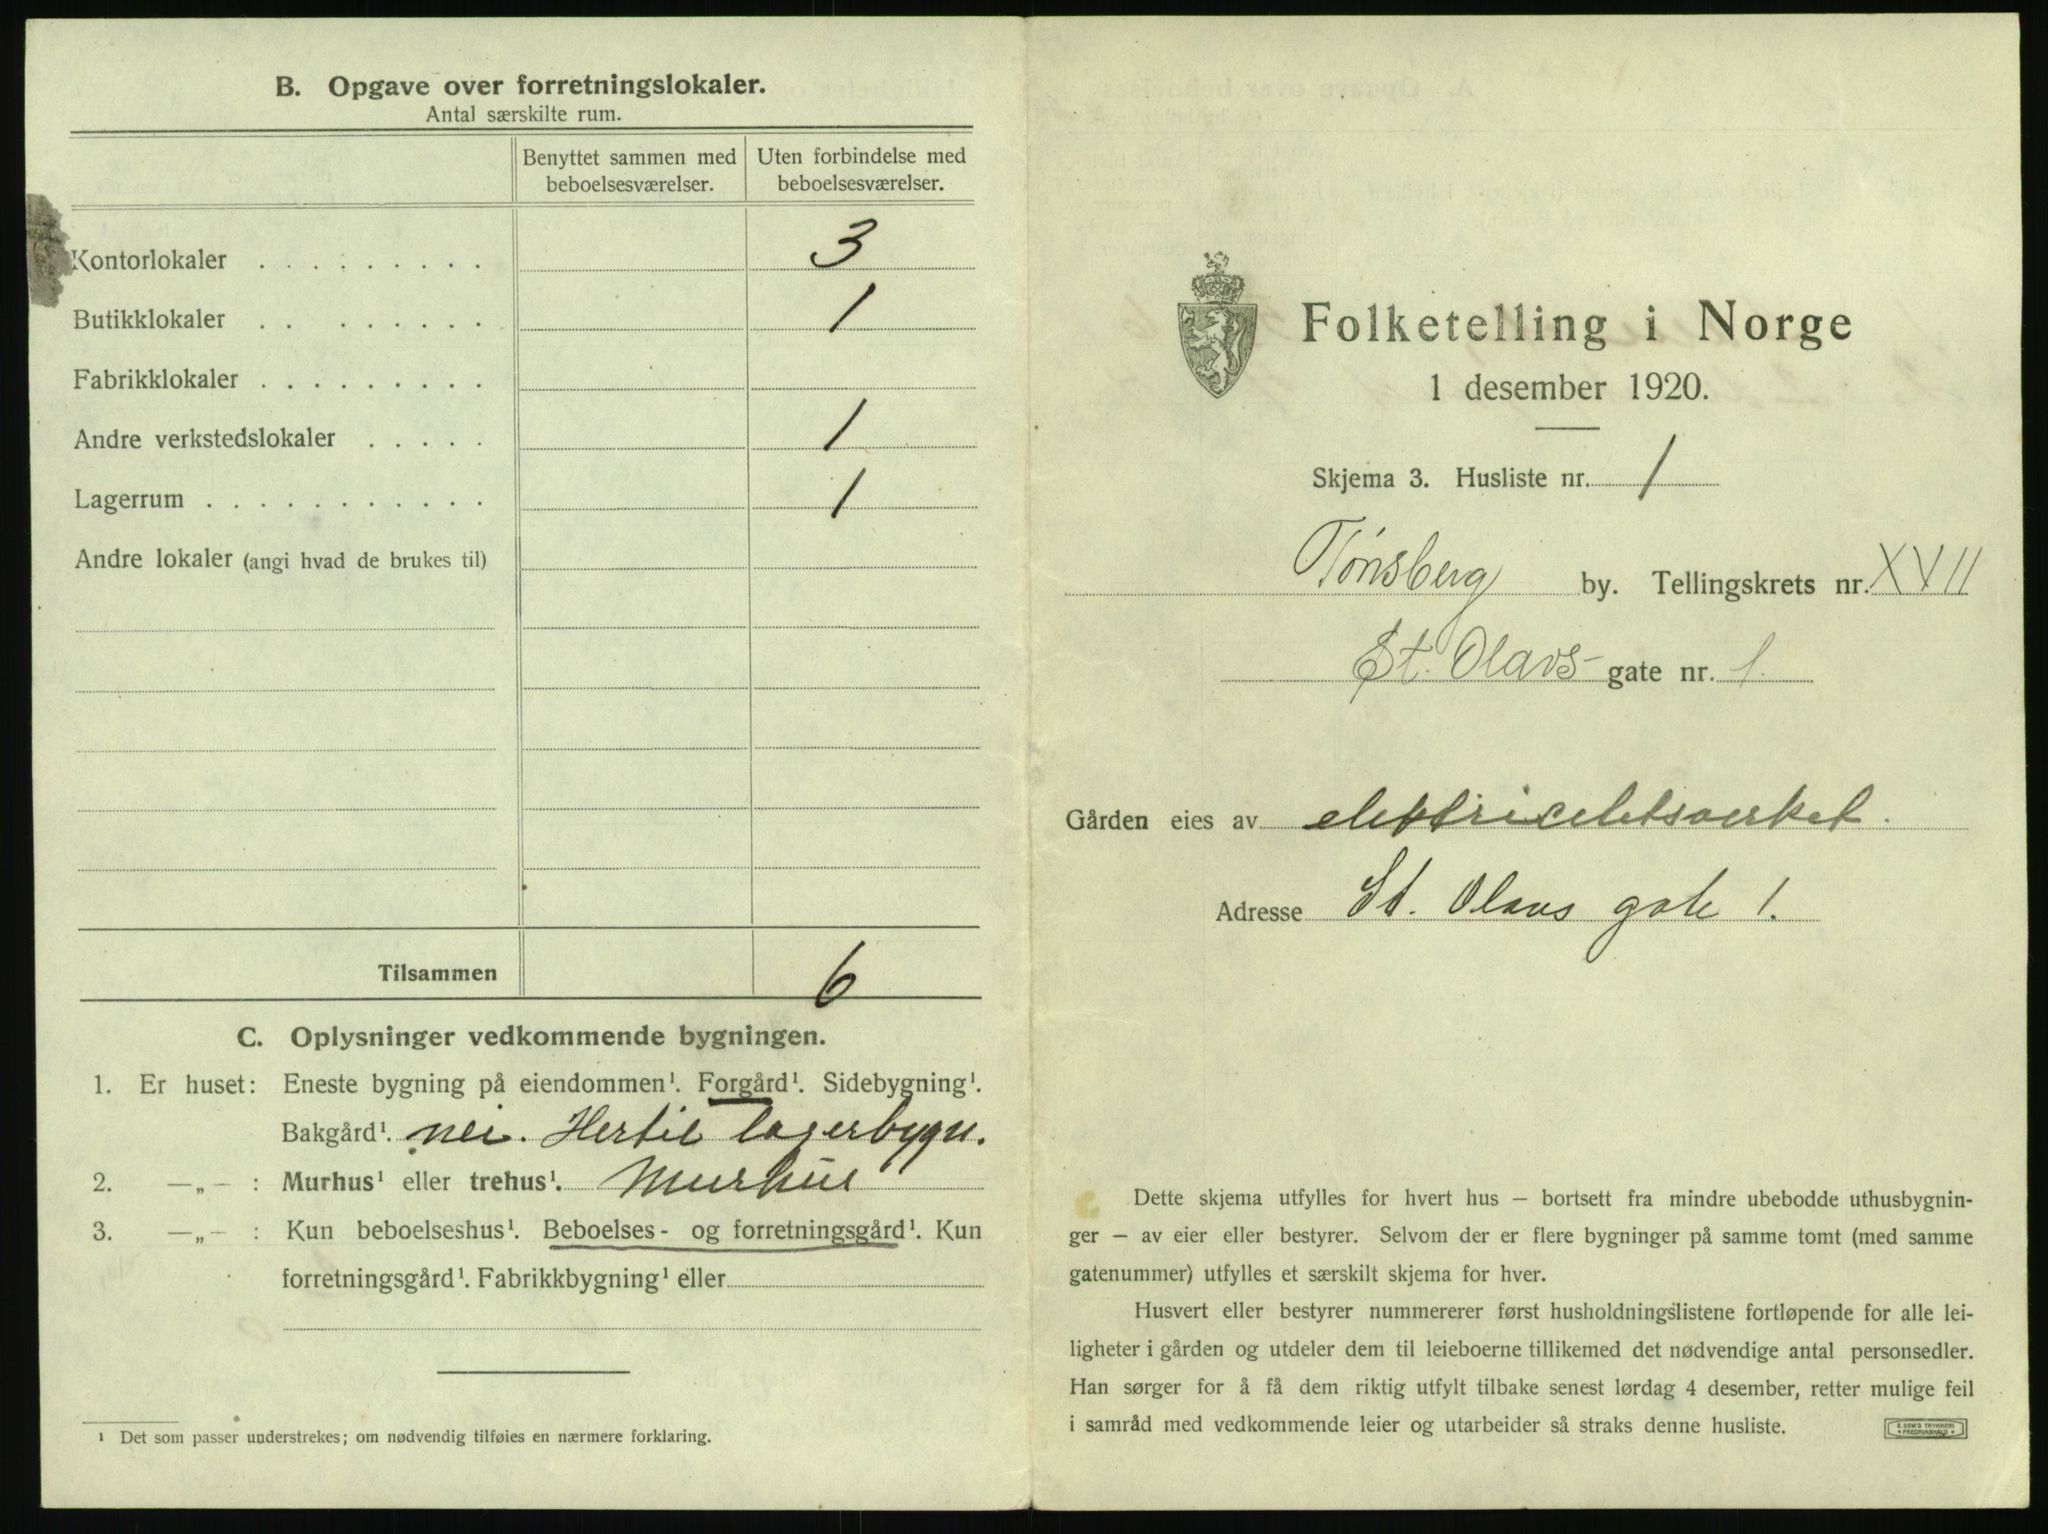 B. Opgave over forretningslokaler.
Antal særskilte rum.
Benyttet sammen med beboelsesværelser.
Uten forbindelse med beboelsesværelser.
Kontorlokaler . . . . . . . . . 3
Butikklokaler . . . . . . . . 1
Fabrikklokaler . . . . . . . . .
Andre verkstedslokaler . . . . . 1
Lagerrum . . . . . . . . . . . 1
Andre lokaler (angi hvad de brukes til)
Tilsammen 6
C. Oplysninger vedkommende bygningen.
1. Er huset: Eneste bygning på eiendommen¹. Forgård¹. Sidebygning¹.
Bakgård¹. nei. Hertil lagerbygn.
2. —„— : Murhus¹ eller trehus¹. Murhus
3. —„— : Kun beboelseshus¹. Beboelses- og forretningsgård¹. Kun
forretningsgård¹. Fabrikkbygning¹ eller
¹ Det som passer understrekes; om nødvendig tilføies en nærmere forklaring.
Folketelling i Norge
1 desember 1920.
Skjema 3. Husliste nr. 1
Tønsberg by. Tellingskrets nr. XVII
St. Olavs- gate nr. 1.
Gården eies av elektricitetsverket.
Adresse St. Olavs gate 1.
Dette skjema utfylles for hvert hus – bortsett fra mindre ubebodde uthusbygnin-
ger – av eier eller bestyrer. Selvom der er flere bygninger på samme tomt (med samme
gatenummer) utfylles et særskilt skjema for hver.
Husvert eller bestyrer nummererer først husholdningslistene fortløpende for alle lei-
ligheter i gården og utdeler dem til leieboerne tillikemed det nødvendige antal personsedler.
Han sørger for å få dem riktig utfylt tilbake senest lørdag 4 desember, retter mulige feil
i samråd med vedkommende leier og utarbeider så straks denne husliste.
E. SEM'S TRYKKERI
FREDRIKSHALD